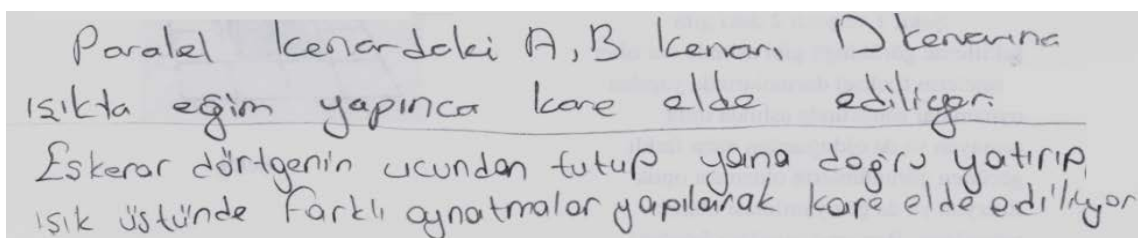 Paralel kenardaki A, B kenarı, D kenarına
ışıkta eğim yapınca kare elde ediliyor.
Eşkenar dörtgenin ucundan tutup yana doğru yatırıp,
ışık üstünde farklı oynatmalar yapılarak kare elde ediliyor